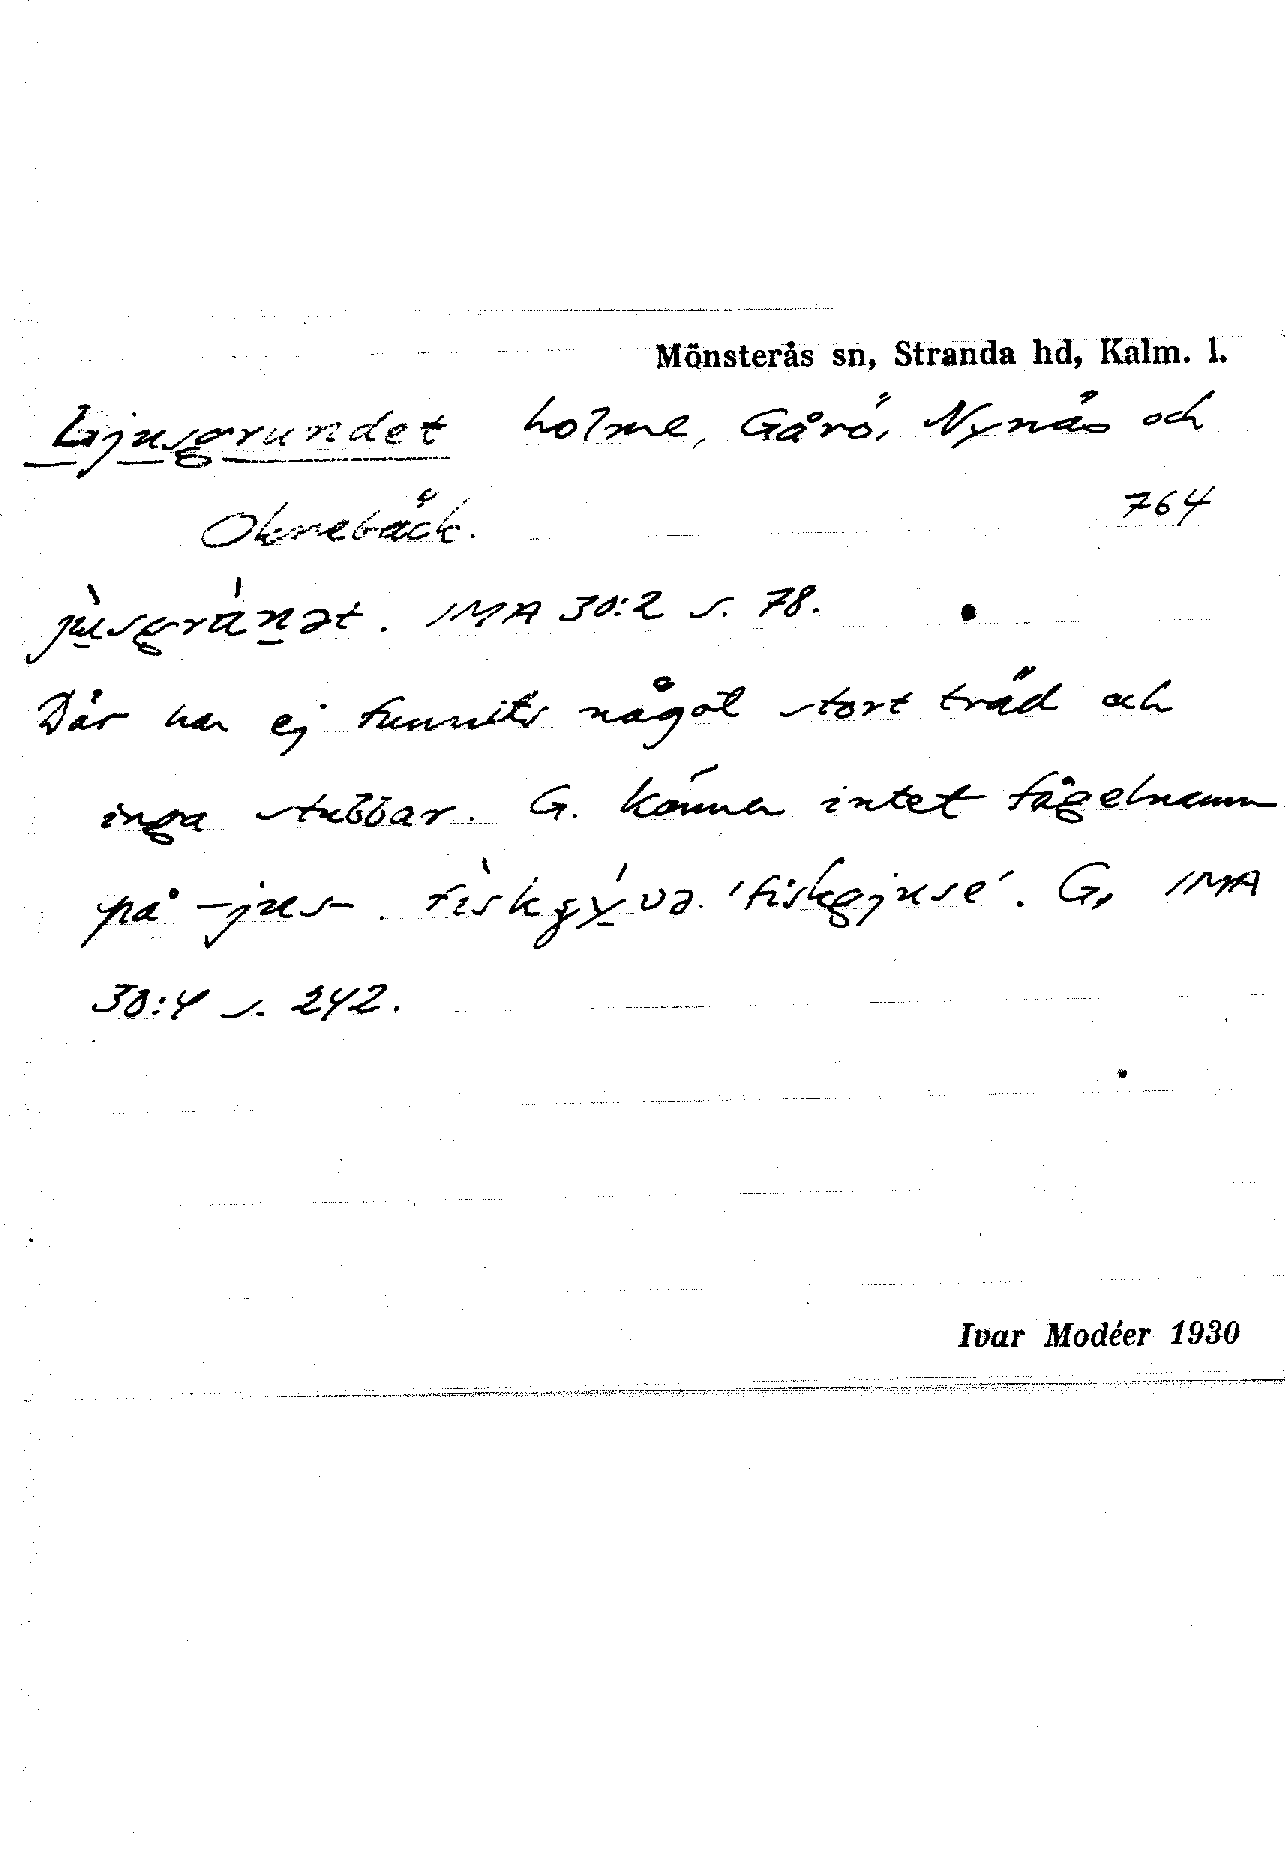 Mönsterås sn, Stranda hd, Kalm. l.
Ljusgrundet holme, Gårö, Nynäs och
Oknebäck. 764
jùsgránət. IMA 30:2 s. 78.
Där har ej funnits något stort träd och
inga stubbar. G. känner intet fågelnamn
på -jus-. 'fiskgjuse'. G, IMA
30:4 s. 242.
Ivar Modéer 1930